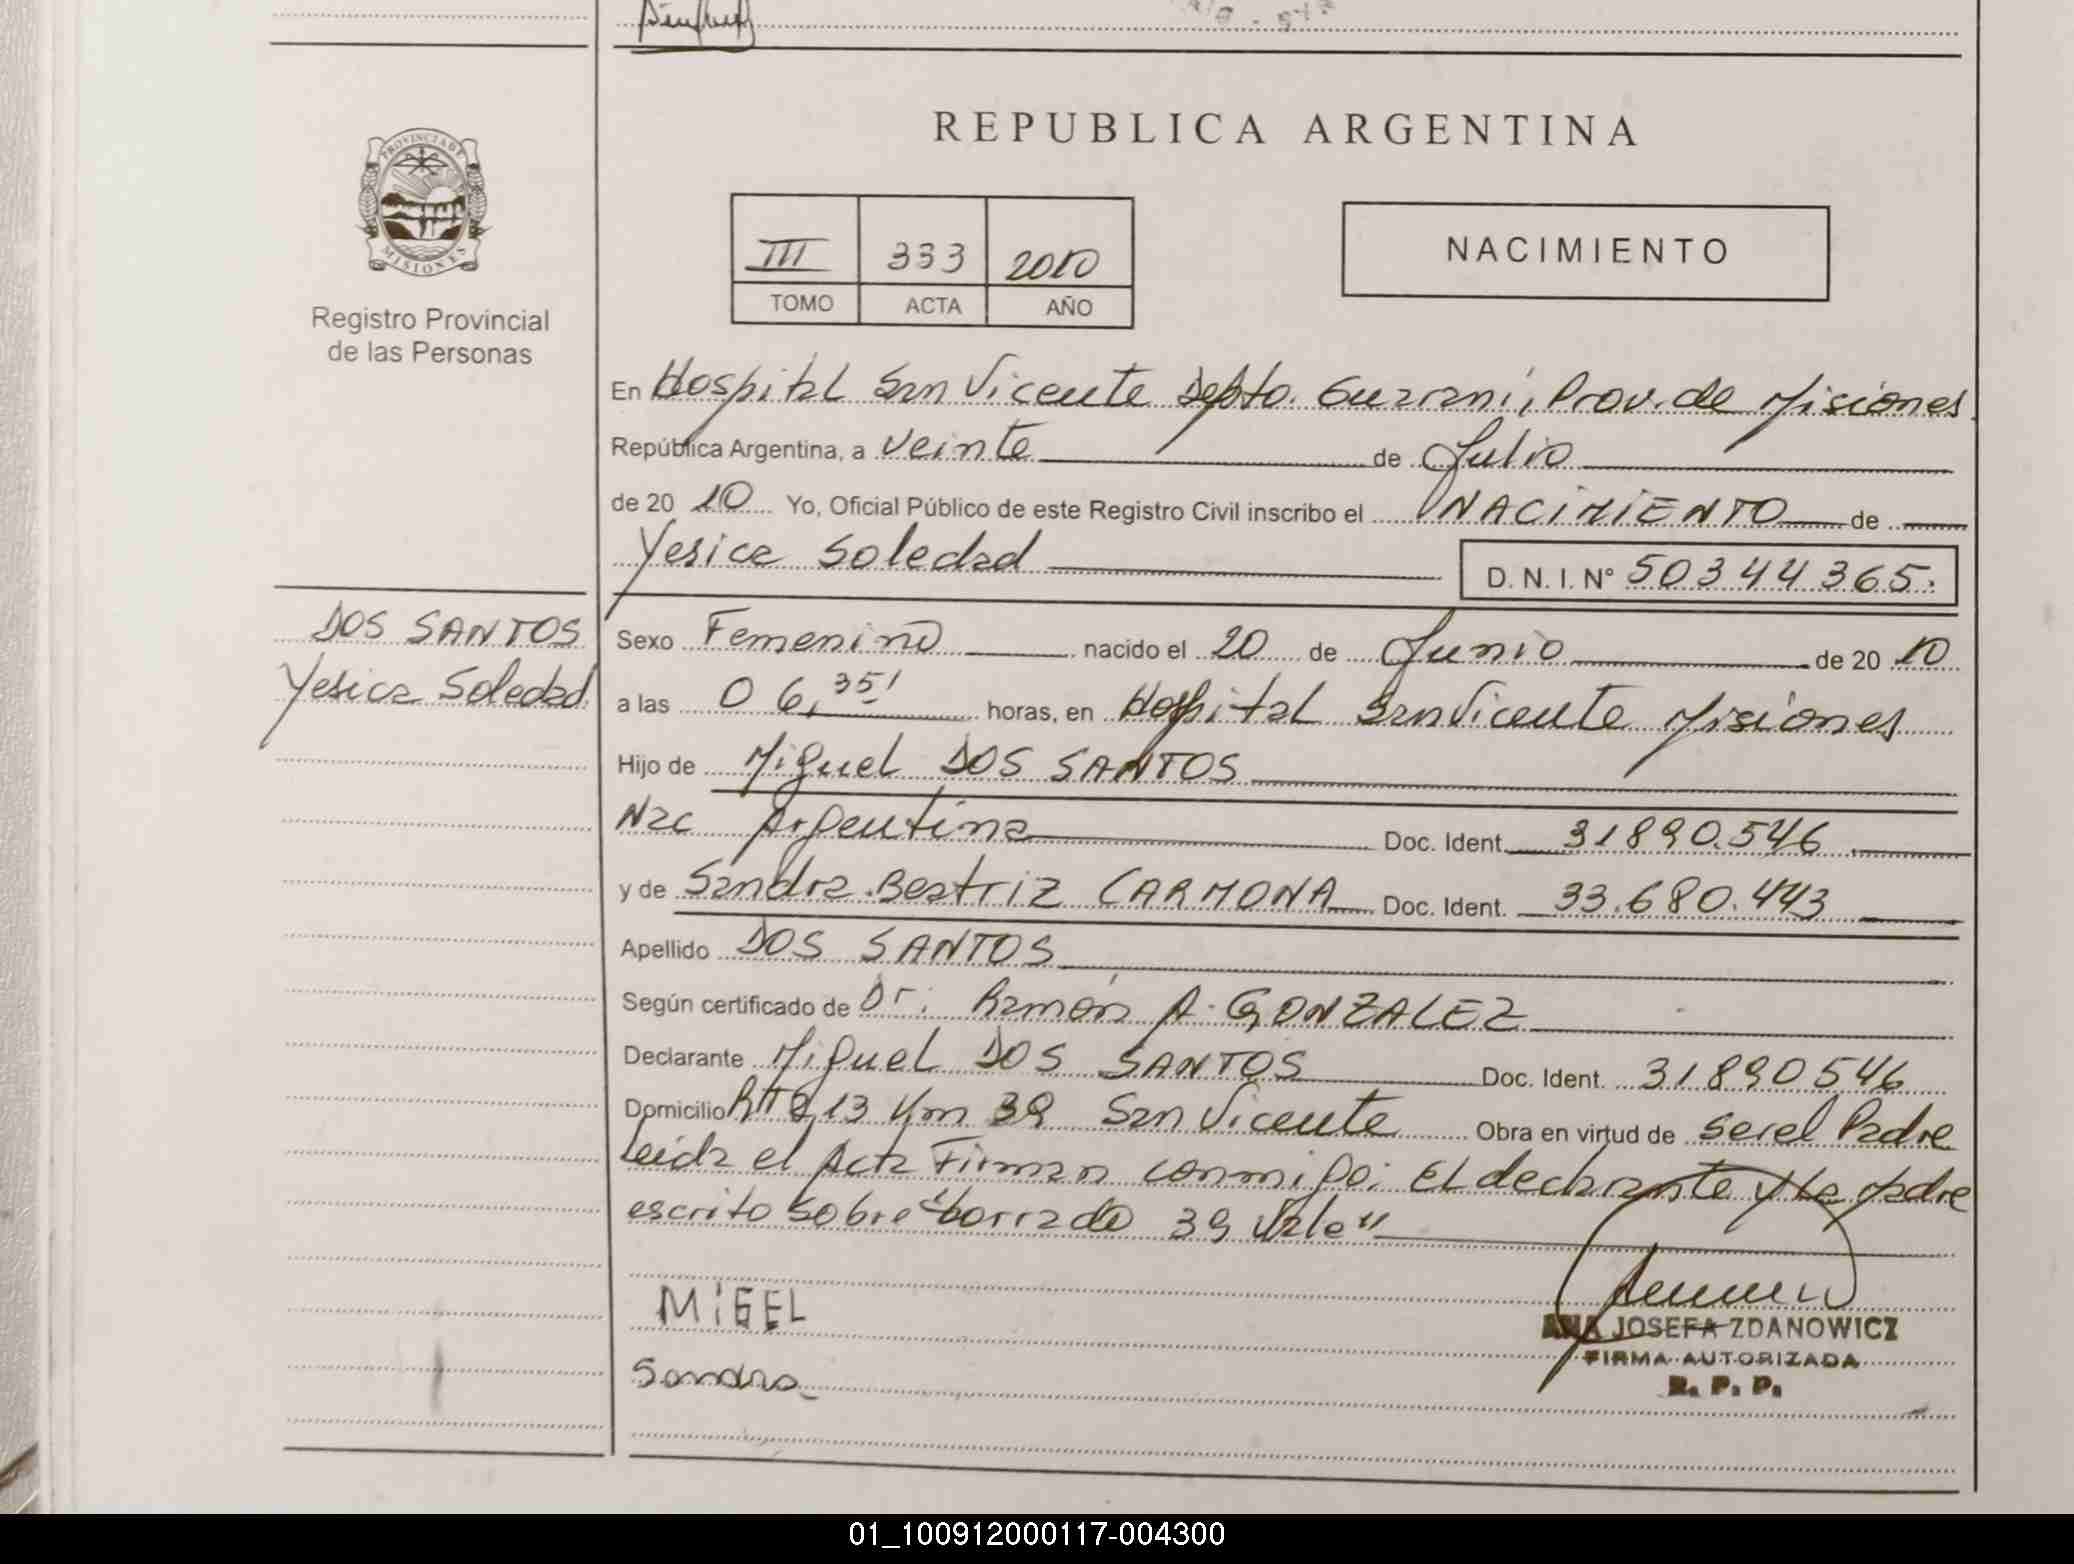 REPUBLICA ARGENTINA
PROVINCIA DE
MISIONES
Registro Provincial
de las Personas
III 333 2010
TOMO ACTA AÑO
NACIMIENTO
En Hospital San Vicente Depto. Guarani, Prov. de Misiones.
República Argentina, a veinte de Julio
de 20 10 Yo, Oficial Público de este Registro Civil inscribo el NACIMIENTO de
Yesica Soledad D. N. I. N° 50344365.
DOS SANTOS
Yesica Soledad
Sexo Femenino nacido el 20 de Junio de 20 10
a las 06,35' horas, en Hospital San Vicente Misiones
Hijo de Miguel DOS SANTOS
Nac Argentina Doc. Ident. 31890.546
y de Sandra Beatriz CARMONA Doc. Ident. 33.680.443
Apellido DOS SANTOS
Según certificado de Dr. Ramón A. GONZALEZ
Declarante Miguel DOS SANTOS Doc. Ident. 31890546
Domicilio 13 Km 39 San Vicente Obra en virtud de ser el Padre
Leida el Acta Firman conmigo: El declarante y La Madre
escrito sobre "borrado 39 Vale"
MIGEL
Sandra
ANA JOSEFA ZDANOWICZ
FIRMA AUTORIZADA
R. P. P.
01_100912000117-004300